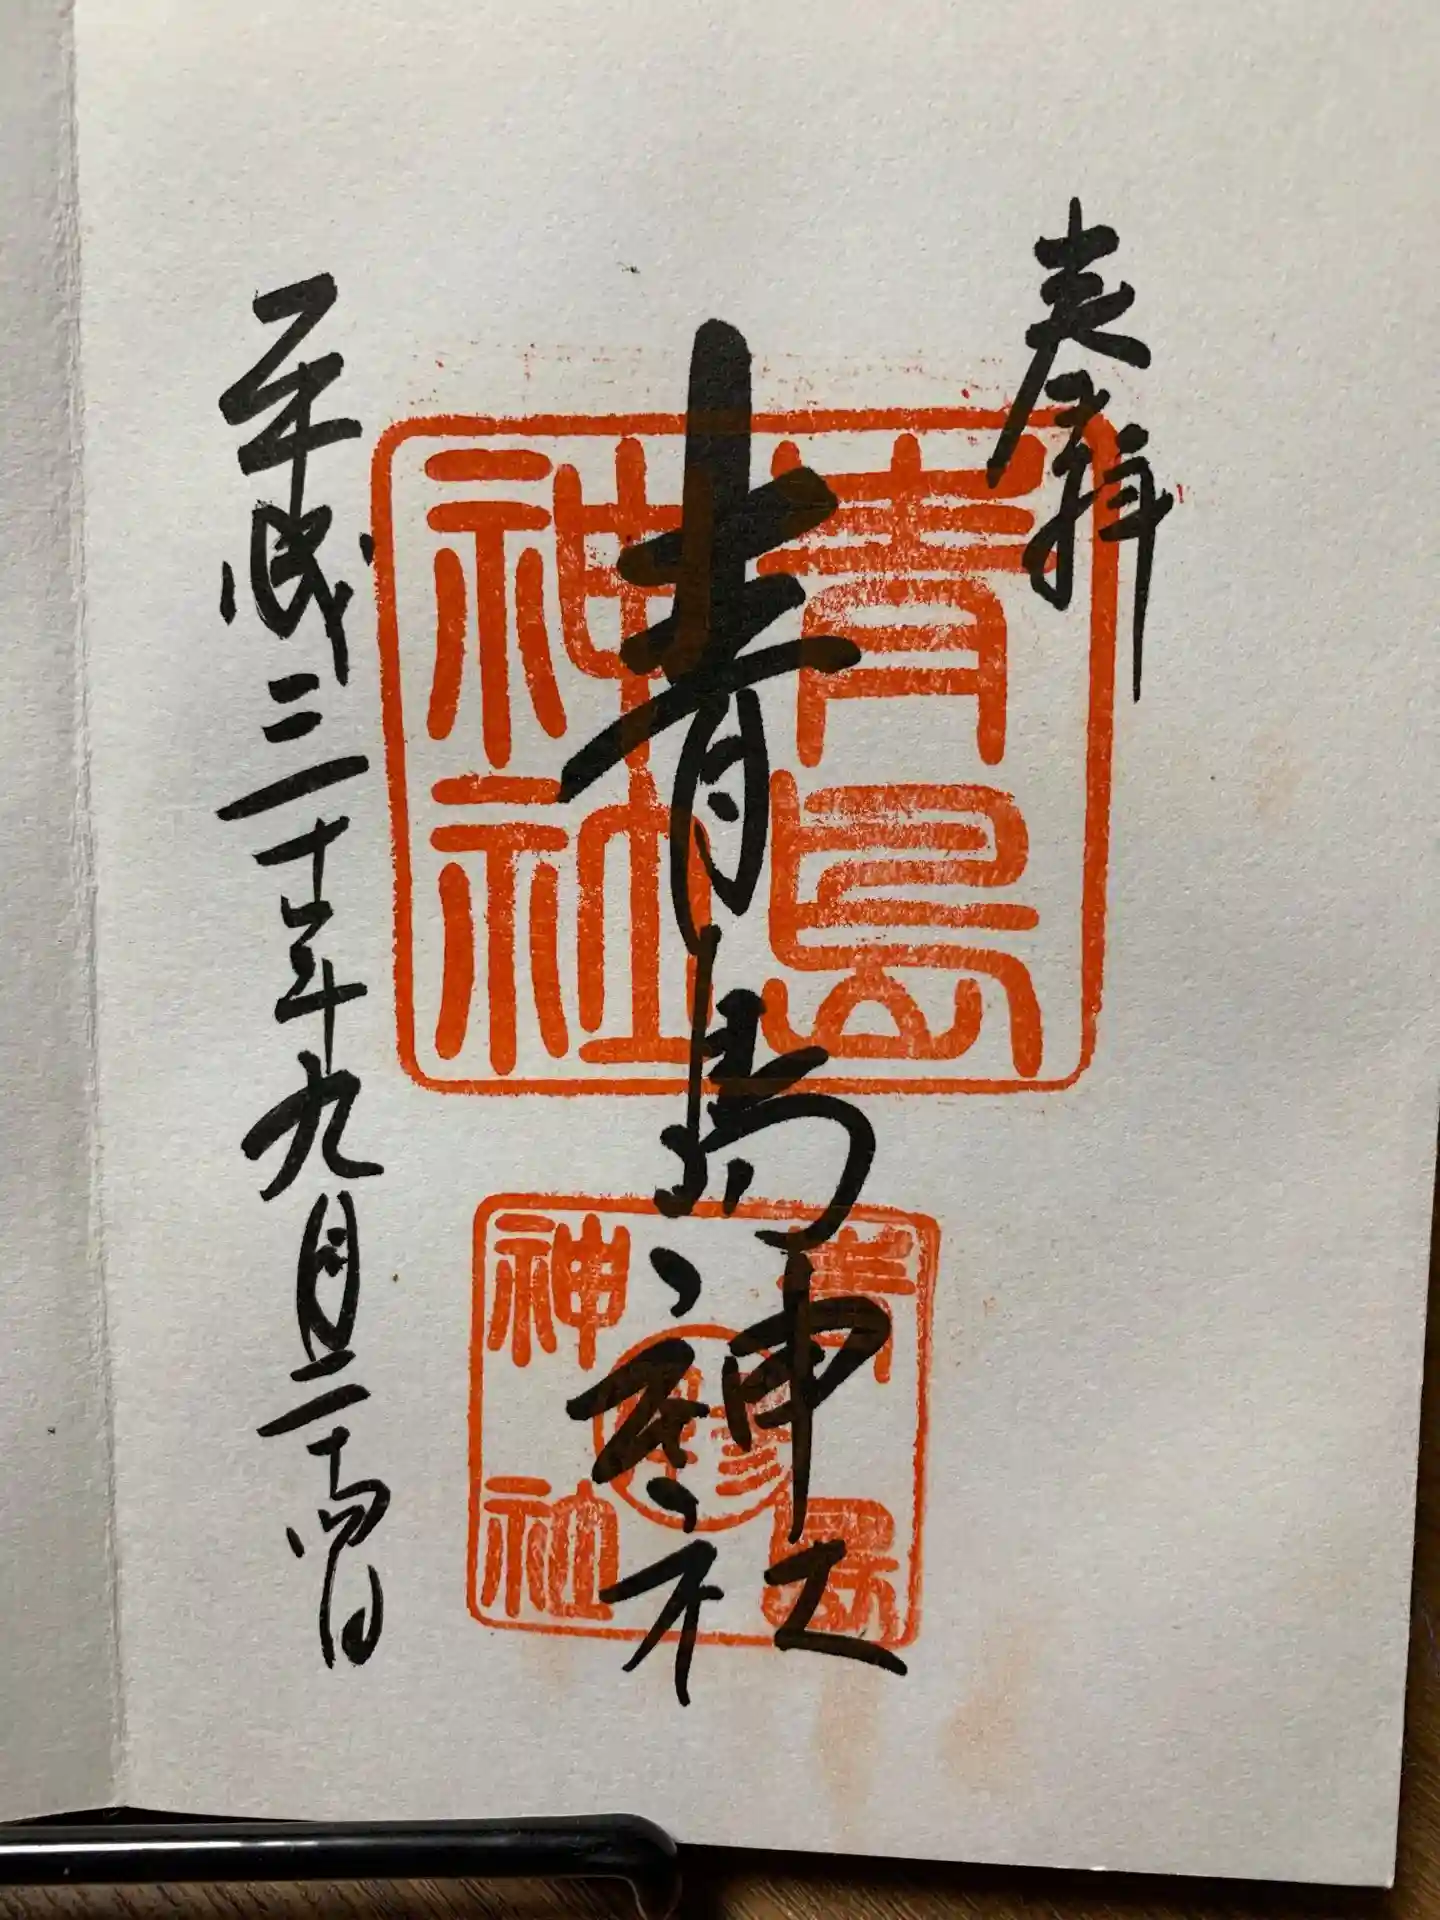 奉拝
青島神社
青島
神社
青島
神社
平成三十年九月二十四日